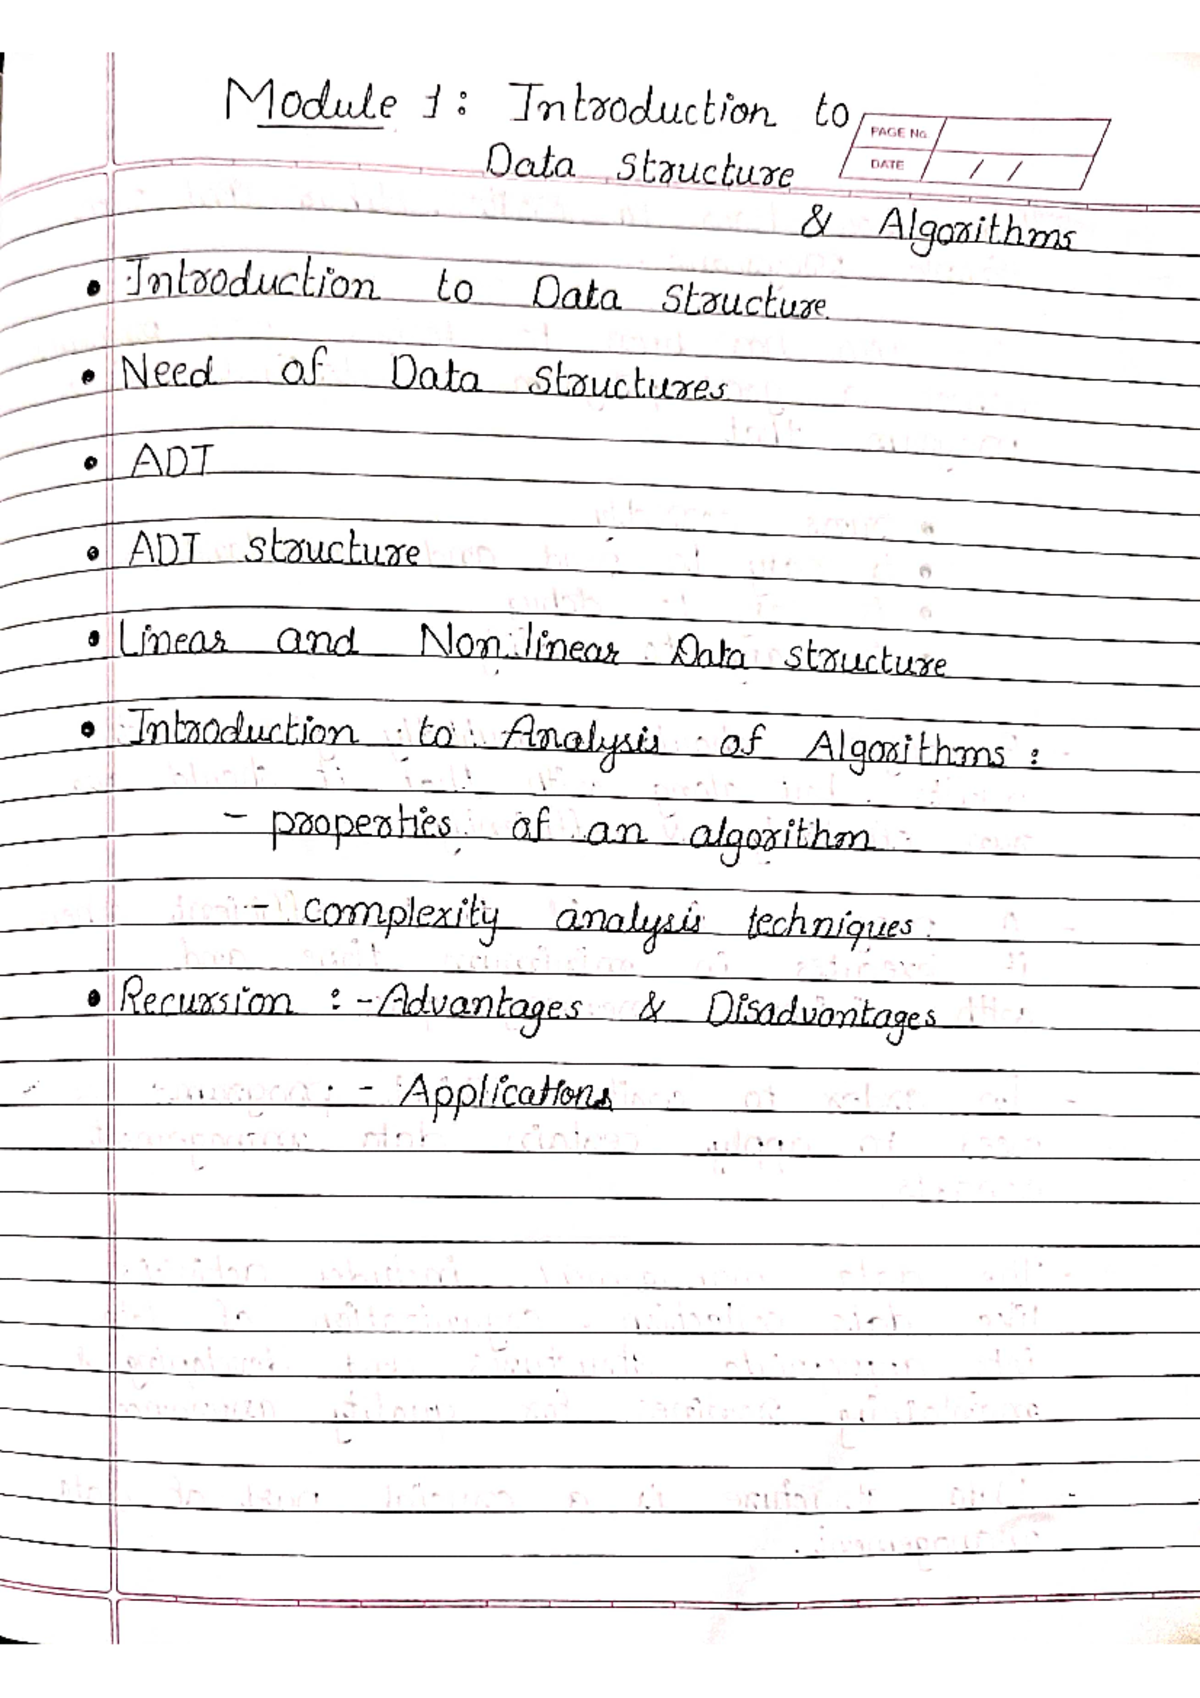 Module 1: Introduction to
PAGE No.
DATE / /
Data Structure
& Algorithms
• Introduction to Data Structure.
• Need of Data Structures
• ADT
• ADT structure
• Linear and Non linear Data structure
• Introduction to Analysis of Algorithms :
- properties of an algorithm
- complexity analysis techniques.
• Recursion : - Advantages & Disadvantages
: - Applications